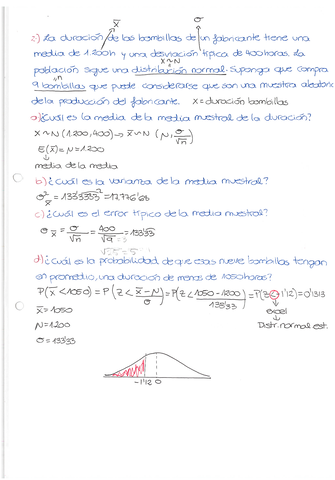 x̄ σ
2) La duración de las bombillas de un fabricante tiene una
media de 1.200h y una desviación típica de 400horas. La
x~N
población sigue una distribución normal. Suponga que compra
n
9 bombillas que puede considerarse que son una muestra aleatoria
de la producción del fabricante. X = duración bombillas
a) ¿Cuál es la media de la media muestral de la duración?
X ~ N (1.200,400) → x̄ ~ N (μ, σ/√n)
E(x̄) = μ = 1.200
↓
media de la media
b) ¿Cuál es la varianza de la media muestral?
c) ¿Cuál es el error típico de la media muestral?
σx̄ = σ/√n = 400/√9 = 133'33
d) ¿Cuál es la probabilidad de que esas nueve bombillas tengan
en promedio, una duración de menos de 1050horas?
P(x̄ < 1050) = P(Z < x̄ - μ/σ) = P(Z < 1050 - 1200/133'33) = P(Z < -1'12) = 0'1313
x̄ = 1050
excel
μ = 1200
Distr. normal est.
σ = 133'33
-1'12 0